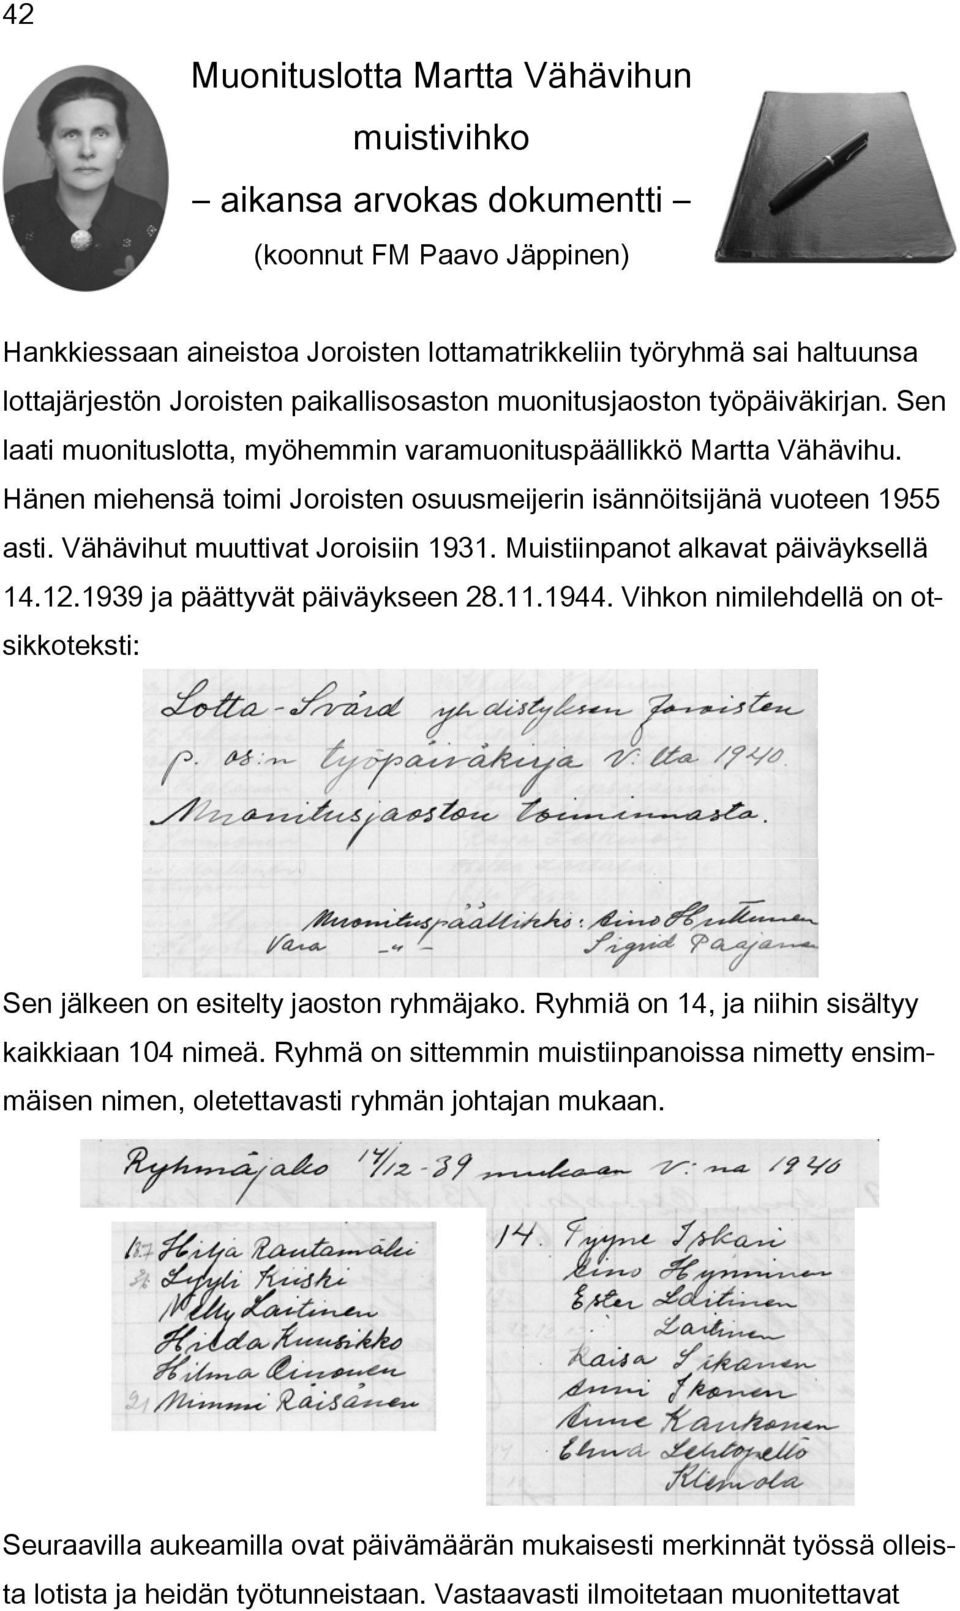 42
Muonituslotta Martta Vähävihun
muistivihko
– aikansa arvokas dokumentti –
(koonnut FM Paavo Jäppinen)
Hankkiessaan aineistoa Joroisten lottamatrikkeliin työryhmä sai haltuunsa
lottajärjestön Joroisten paikallisosaston muonitusjaoston työpäiväkirjan. Sen
laati muonituslotta, myöhemmin varamuonituspäällikkö Martta Vähävihu.
Hänen miehensä toimi Joroisten osuusmeijerin isännöitsijänä vuoteen 1955
asti. Vähävihut muuttivat Joroisiin 1931. Muistiinpanot alkavat päiväyksellä
14.12.1939 ja päättyvät päiväykseen 28.11.1944. Vihkon nimilehdellä on ot-
sikkoteksti:
Lotta-Svärd yhdistyksen Joroisten
p. os:n työpäiväkirja v:lta 1940.
Muonitusjaoston toiminnasta.
Muonituspäällikkö: Aino Huttunen
Vara –"– Sigrid Paajanen
Sen jälkeen on esitelty jaoston ryhmäjako. Ryhmiä on 14, ja niihin sisältyy
kaikkiaan 104 nimeä. Ryhmä on sittemmin muistiinpanoissa nimetty ensim-
mäisen nimen, oletettavasti ryhmän johtajan mukaan.
Ryhmäjako 14/12-39 mukaan v:na 1940
Hilja Rautamäki
Lyyli Kiiski
Nelly Laitinen
Hilda Kuusikko
Hilma Oinonen
Mimmi Räisänen
14. Tyyne Iskari
Aino Hynninen
Ester Laitinen
Laitinen
Kaisa Sikanen
Anni Ikonen
Anne Kaukonen
Elma Lehtopelto
Klemola
Seuraavilla aukeamilla ovat päivämäärän mukaisesti merkinnät työssä olleis-
ta lotista ja heidän työtunneistaan. Vastaavasti ilmoitetaan muonitettavat